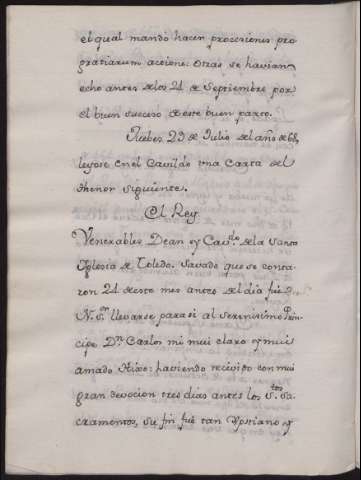 el qual mandó hacen procesiones pro
gratiarum actione. Otras se havian
echo antes de los 24 de Septiembre por
el buen suceso de este buen parto.
Jueves 29 de Julio del año de 68,
leyose en el Cavildo una Carta del
thenor siguiente.
El Rey
Venerables Dean y Cav.do de la Santa
Iglesia de Toledo. Savado que se conta
ron 24 de este mes antes del dia fué
N. S.or llevarse para si al Serenisimo Prin
cipe D.n Carlos mi mui claro y mui
amado Hixo: haviendo recivido con mui
gran devocion tres dias antes los S.tos Sa
cramentos, su fin fué tan Xpstiano y